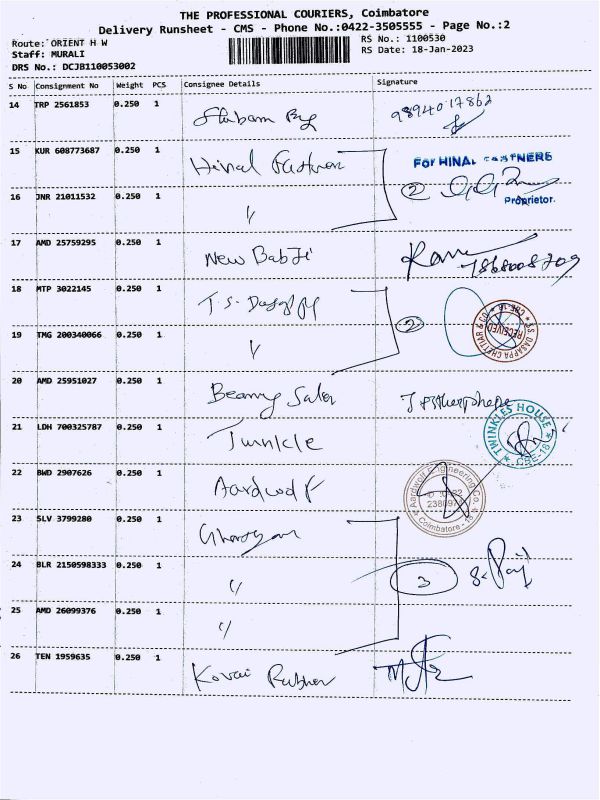 THE PROFESSIONAL COURIERS, Coimbatore
Delivery Runsheet - CMS - Phone No.:0422-3505555 - Page No.:2
Route: ORIENT H W
Staff: MURALI
DRS No.: DCJB110053002
RS No.: 1100530
RS Date: 18-Jan-2023
S No Consignment No Weight PCS Consignee Details Signature
14 TRP 2561853 0.250 1 9894017862
15 KUR 608773687 0.250 1 Hinal For HINAL
16 JNR 21011532 0.250 1 〃 2 Proprietor.
17 AMD 25759295 0.250 1 New BabJi
18 MTP 3022145 0.250 1 T.S.
19 TMG 200340066 0.250 1 〃 2 T.S. DASAPPA CHETTIAR & CO. CBE-18 RECEIVED
20 AMD 25951027 0.250 1
21 LDH 700325787 0.250 1 Twinkle TWINKLES HOUSE CBE-18
22 BWD 2907626 0.250 1 Aardwolf Aardwolf Engineering Co. Coimbatore - 18
23 SLV 3799280 0.250 1
24 BLR 2150598333 0.250 1 〃 3
25 AMD 26099376 0.250 1 〃
26 TEN 1959635 0.250 1 Kovai Rubber